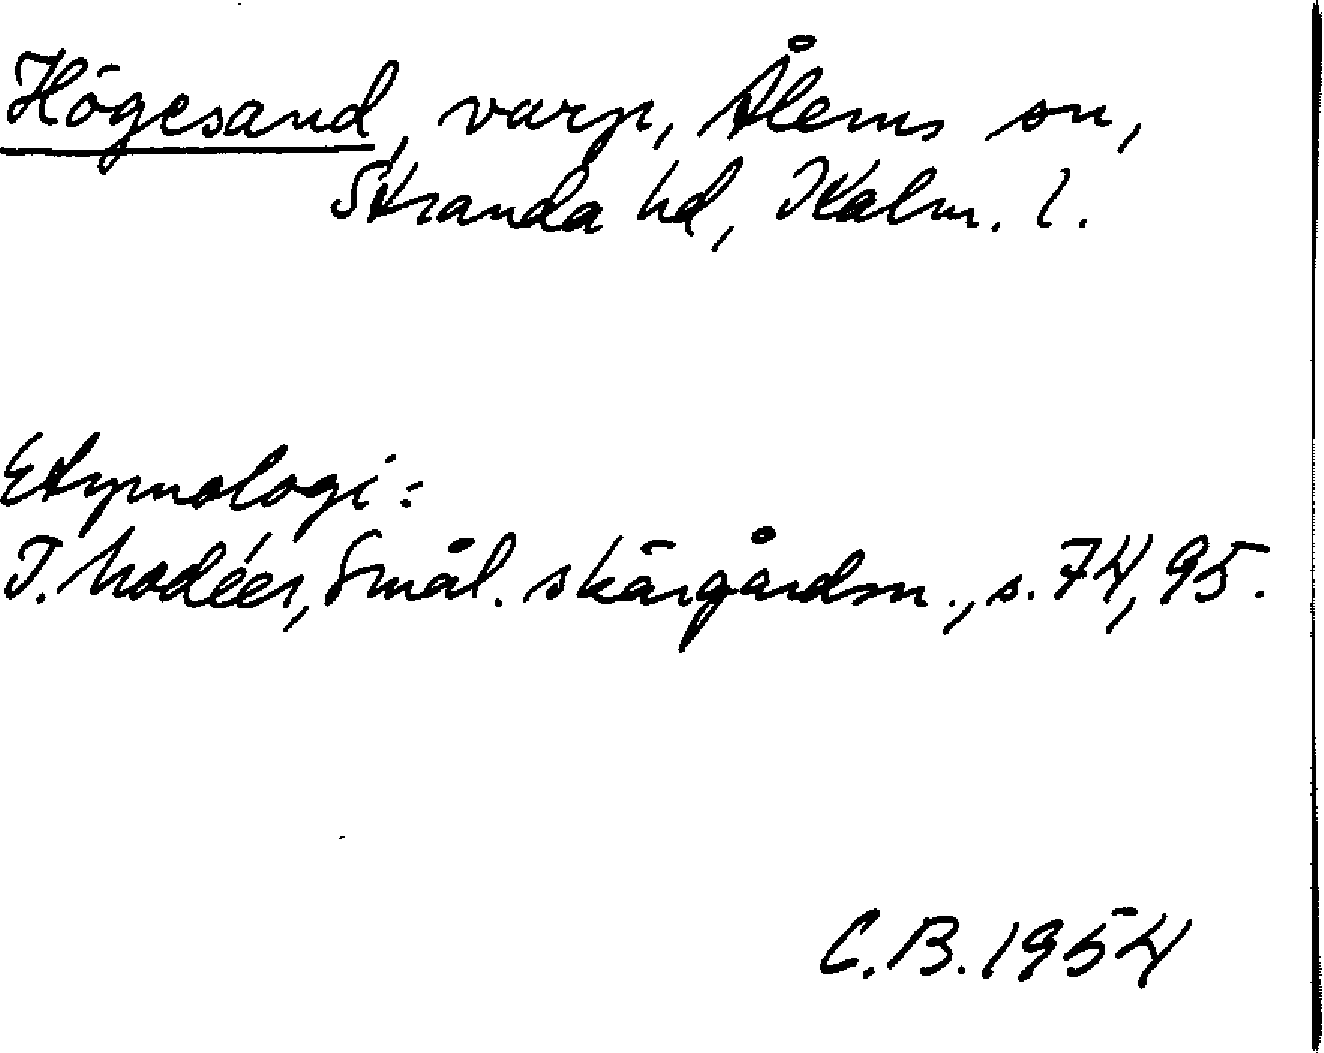 Högesand, varp, Ålems sn,
Stranda hd, Kalm. l.
Etymologi:
I. Modéer, Smål. skärgårdsn., s. 74, 95.
C.B. 1954